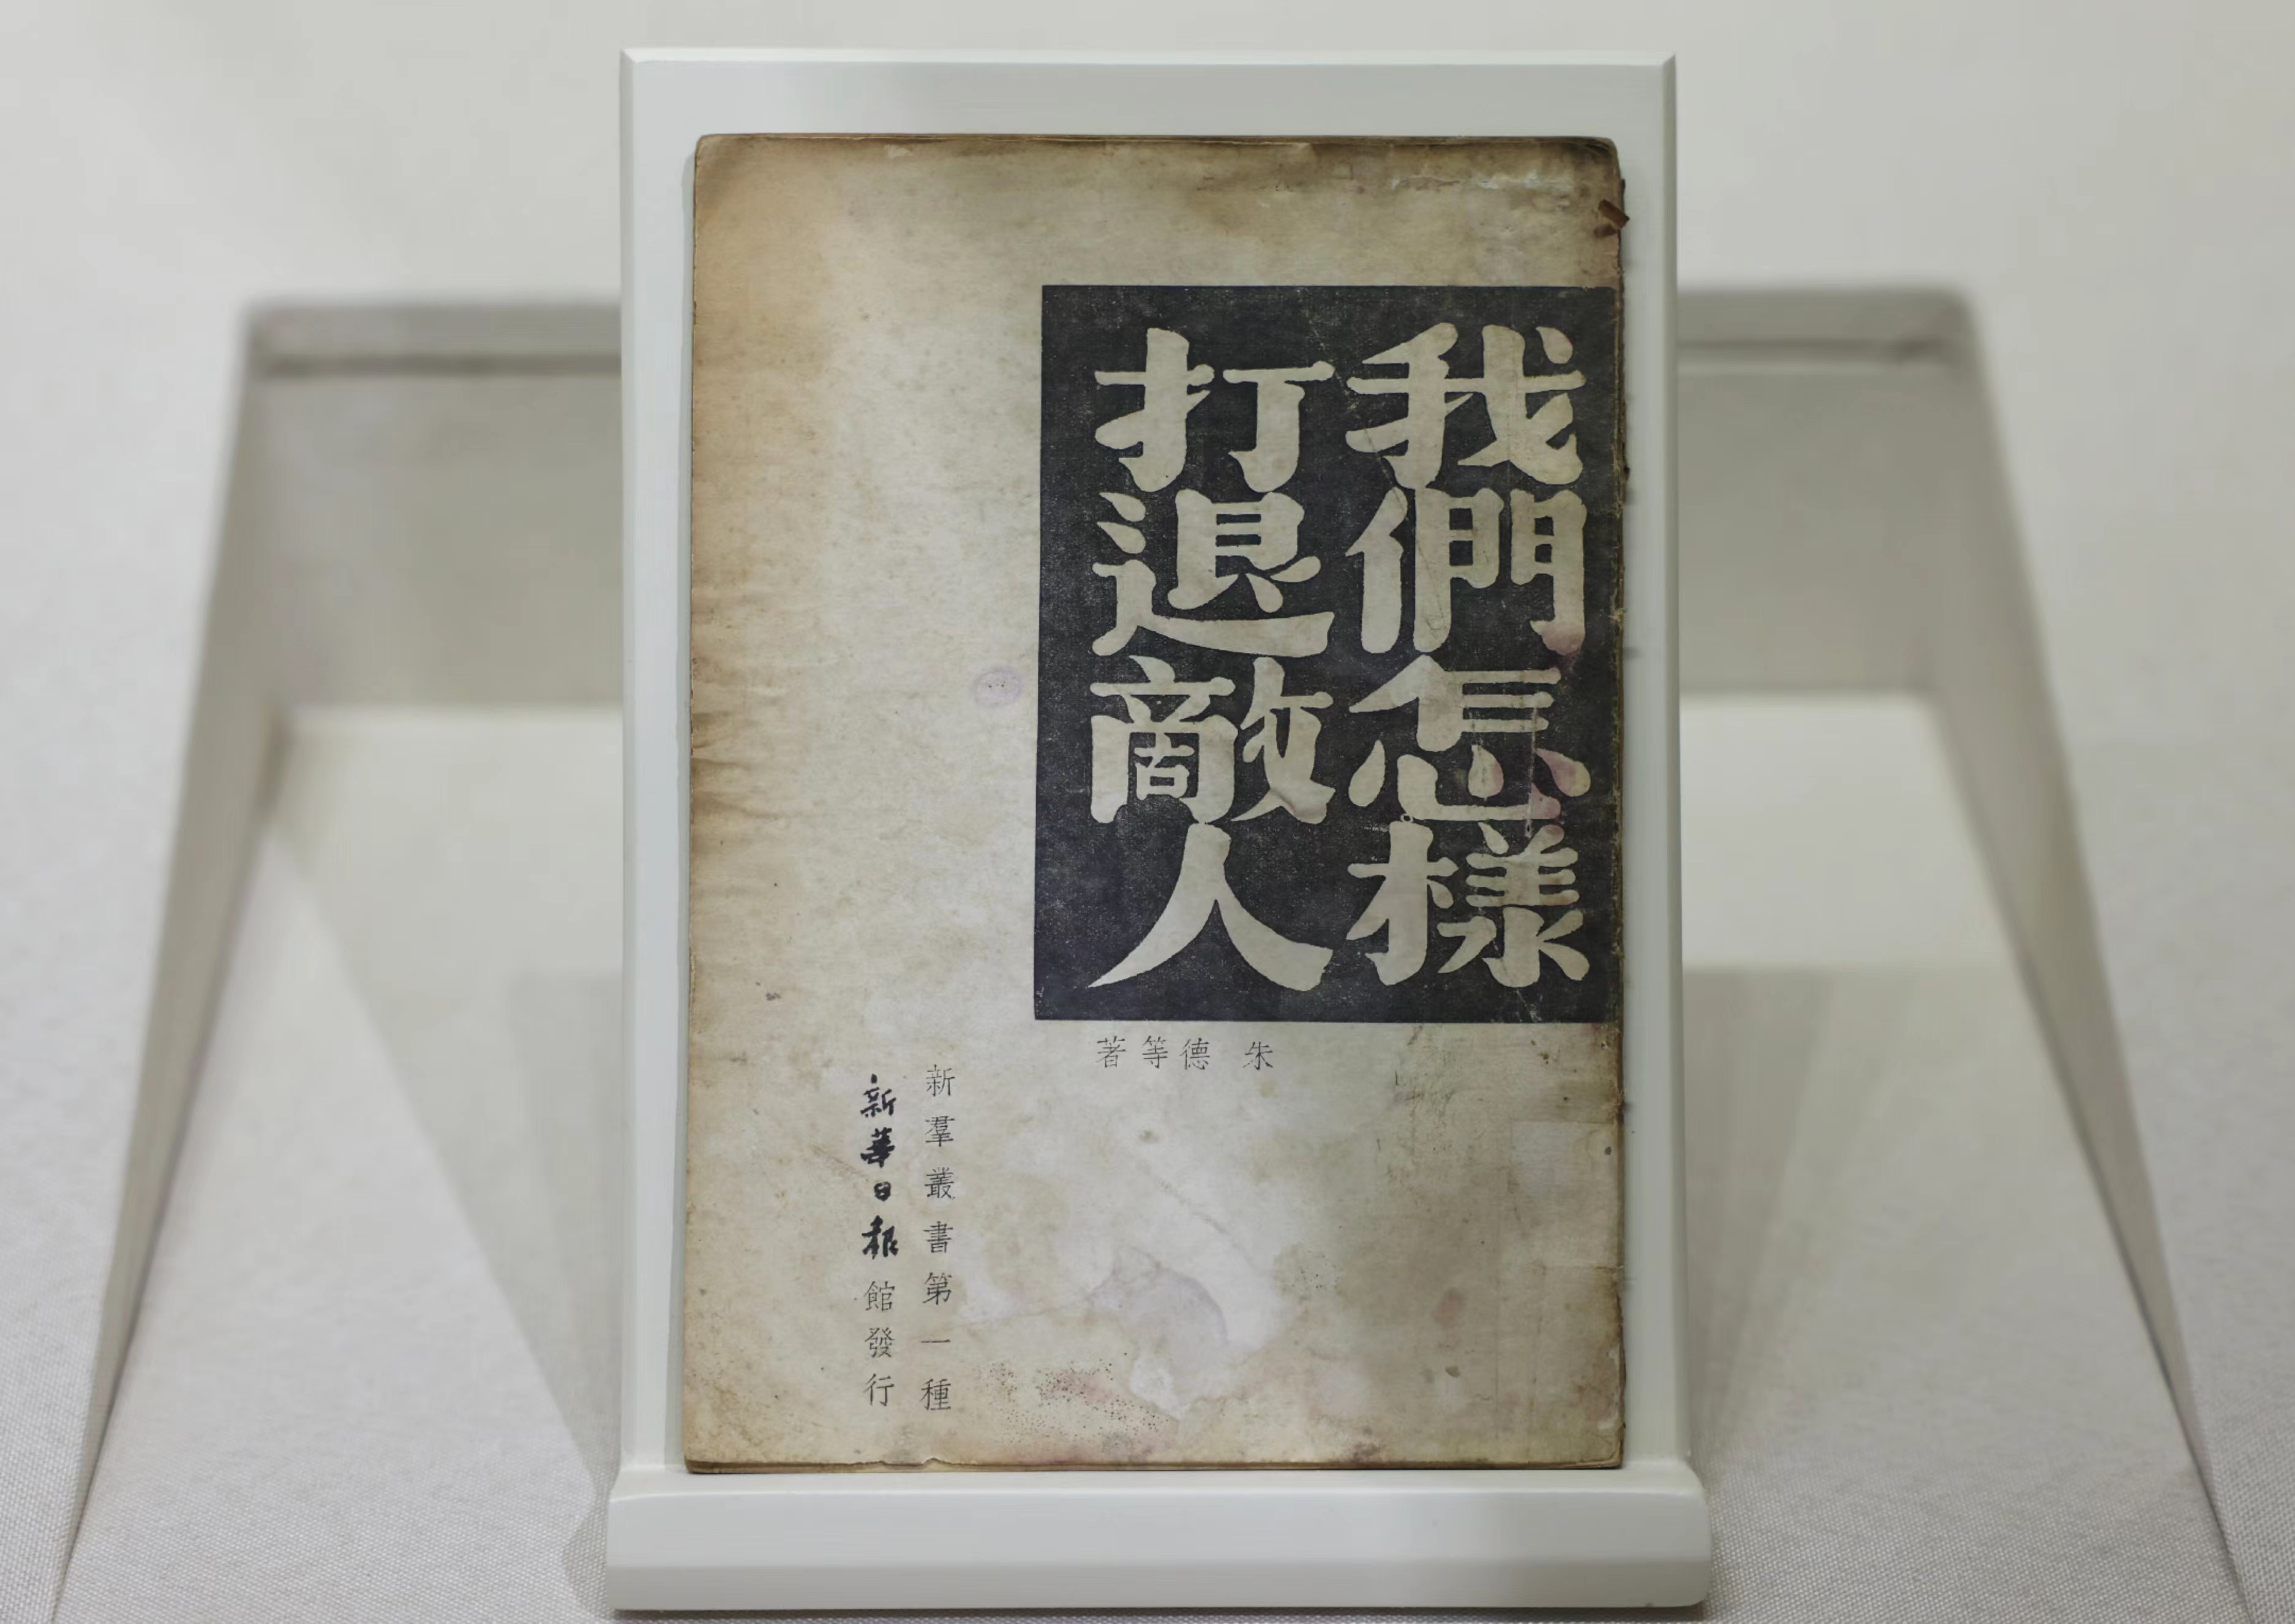 我們怎樣
打退敵人
朱德等著
新羣叢書第一種
新華日報館發行